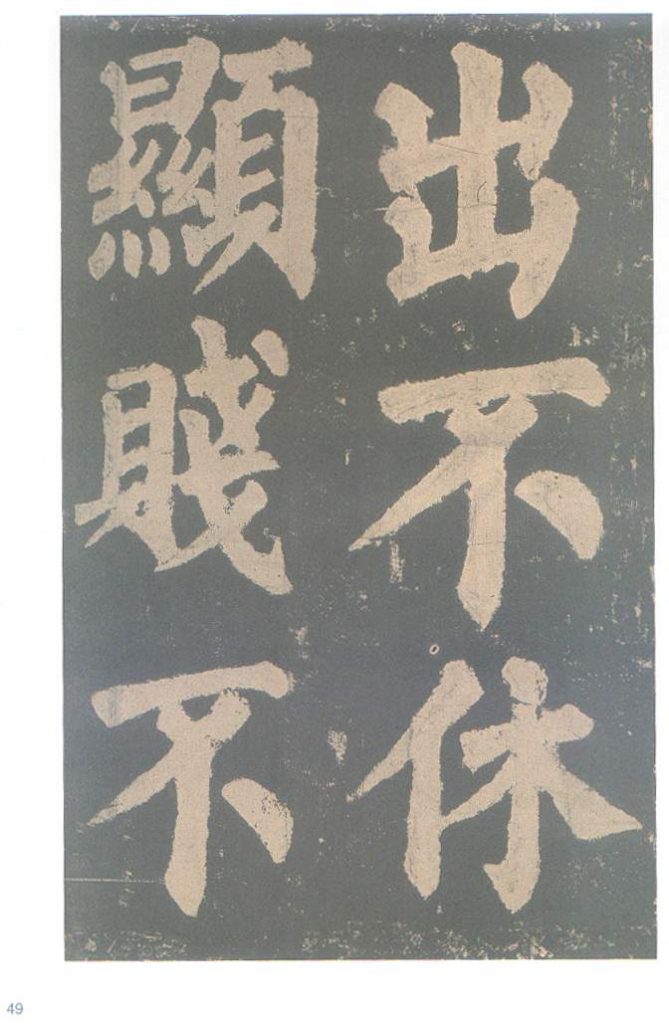 出不休
顯賤不
49